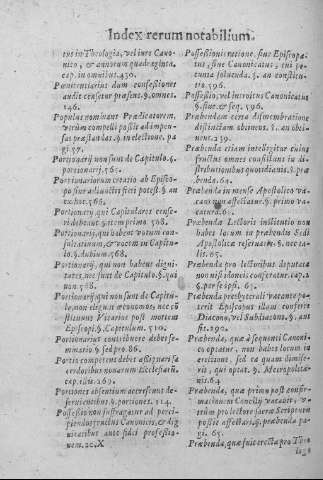 Index rerum notabilium.
tus in Theologia, vel iure Cano-
nico, & annorum quadraginta.
cap. in omnibus. 430.
Pœnitentiarius dum confessiones
audit censetur præsens. §. omnes.
146.
Populus nominans Prædicatorem,
vtrum compelli possit ad impen-
sas præstandas. §. in electione. pa
gi. 57.
Portionarij non sunt de Capitulo. §.
portionarij. 565.
Portionariorum creatio ab Episco-
po fieri potest. §. an
568.
Portionarij qui Capitulares cense-
ri debeant
Portionarij, qui habent votum con-
sultatiuum, & vocem in Capitu-
lo. §. dubium. 568.
Portionarij, qui non habent digni-
tates, nec sunt de Capitulo. §. qui
non. 568.
Portionarij qui non sunt de Capitu-
lo, non eligunt œconomos nec cō
stituunt Vicarios post mortem
Episcopi. §. Capitulum. 510.
Portionarius contribuere debet se-
minario. §. sed pro. 86.
Portio competens debet assignari sa
cerdotibus nouarum Ecclesiarū.
cap. illis. 269.
Portiones absentium accrescunt de-
seruientibus. §. portiones. 514.
Possessio non suffragatur ad perci-
piendos fructus Canonicis, & dig
nitatibus ante fidei professio-
nem. 2c. X
Possessionis ratione, siue Episcopa-
tus, siue Canonicatus, cui pe-
cunia soluenda. §. an constitu-
tio. 596.
Possessio, vel introitus Canonicatus
§. siue. & seq. 596.
Præbendam certa dismembratione
distinctam obtinens. §. an obti-
nens. 239.
Præbenda etiam intelligitur cuius
fructus omnes consistunt in di-
stributionibus quotidianis. §. præ
benda. 64.
Præbenda in mense Apostolico va-
cans non affectatur. §. primo va-
catura. 61.
Præbenda Lectoris institutio non
habet locum in præbendis Sedi
Apostolicæ reseruatis. §. nec ta-
lis. 61.
Præbenda pro lectoribus deputata
non nisi idoneis conferatur. cap. 2
§. per se ipsi. 65.
Præbenda presbyterali vacante po-
terit Episcopus illam conferre
Diacono, vel Subdiacono. §. ant
fit. 290.
Præbenda, quæ à sequenti Canoni-
co optatur, non habet locum in
erectione, sed ea quam dimise-
rit, qui optat. §. Metropolita-
nis. 64
Præbenda, quæ primo post confir-
mationem Concilij vacauit, v-
trum pro lectore sacræ Scripturæ
possit affectari. §. præbenda pa-
gi. 65.
Præbenda, quæ fuit erecta pro Theo
loga